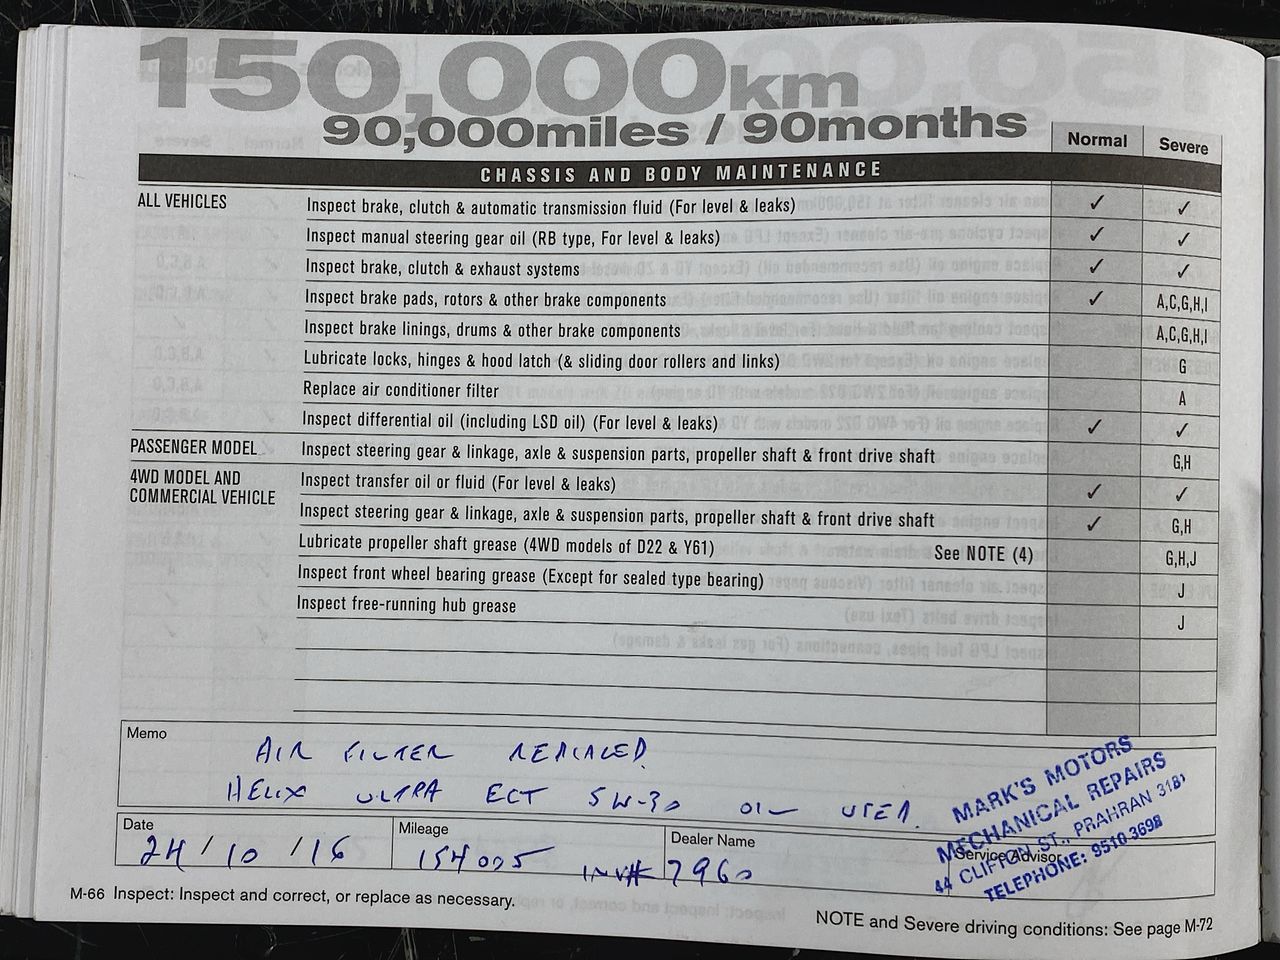 150,000km
90,000miles / 90months
Normal Severe
CHASSIS AND BODY MAINTENANCE
ALL VEHICLES Inspect brake, clutch & automatic transmission fluid (For level & leaks) ✓ ✓
Inspect manual steering gear oil (RB type, For level & leaks) ✓ ✓
Inspect brake, clutch & exhaust systems ✓ ✓
Inspect brake pads, rotors & other brake components ✓ A,C,G,H,I
Inspect brake linings, drums & other brake components A,C,G,H,I
Lubricate locks, hinges & hood latch (& sliding door rollers and links) G
Replace air conditioner filter A
Inspect differential oil (including LSD oil) (For level & leaks) ✓ ✓
PASSENGER MODEL Inspect steering gear & linkage, axle & suspension parts, propeller shaft & front drive shaft G,H
4WD MODEL AND
COMMERCIAL VEHICLE
Inspect transfer oil or fluid (For level & leaks) ✓ ✓
Inspect steering gear & linkage, axle & suspension parts, propeller shaft & front drive shaft ✓ G,H
Lubricate propeller shaft grease (4WD models of D22 & Y61) See NOTE (4) G,H,J
Inspect front wheel bearing grease (Except for sealed type bearing) J
Inspect free-running hub grease J
Memo
AIR FILTER REPLACED
HELIX ULTRA ECT 5W-30 OIL USED.
MARK'S MOTORS
MECHANICAL REPAIRS
44 CLIFTON ST., PRAHRAN 3181
TELEPHONE: 9510 3698
Date
24/10/16
Mileage
154005
INV# 7960
Dealer Name
Service Advisor
M-66 Inspect: Inspect and correct, or replace as necessary.
NOTE and Severe driving conditions: See page M-72